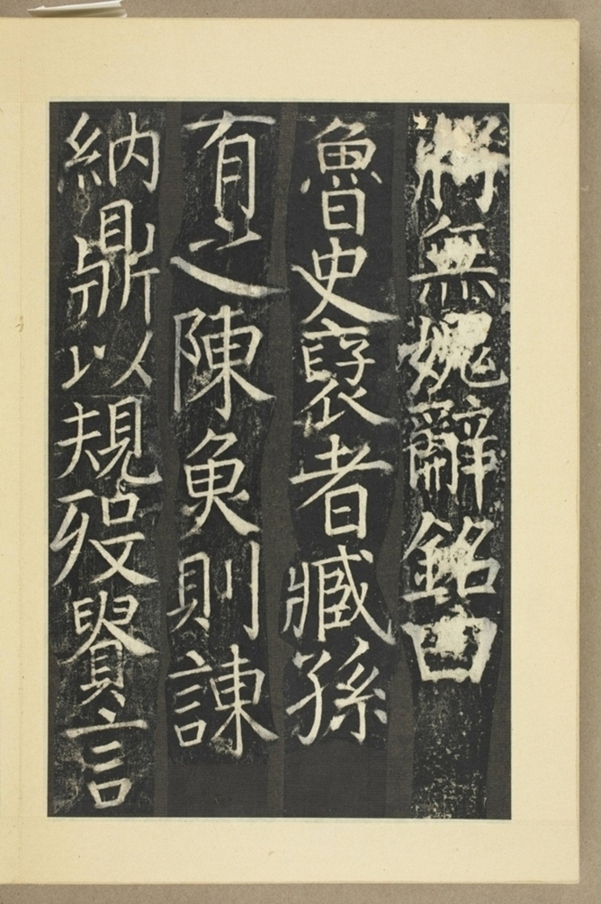 將無媿辭銘曰
魯史褒者臧孫
有之陳魚則諫
納鼎以規歿貴言